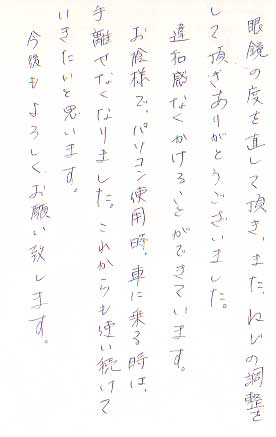 眼鏡の度を直して頂き、また、ねじの調整を
して頂きありがとうございました。
違和感なくかけることができています。
お陰様で、パソコン使用時、車に乗る時は、
手離せなくなりました。これからも使い続けて
いきたいと思います。
今後もよろしくお願い致します。